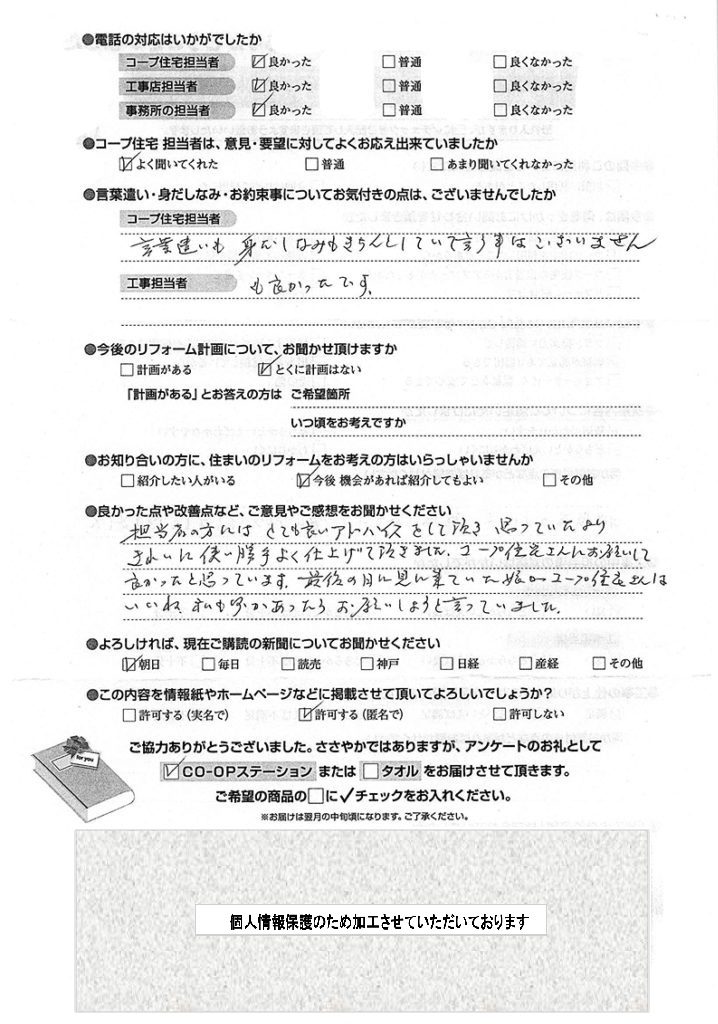 ●電話の対応はいかがでしたか
コープ住宅担当者 ☑良かった □普通 □良くなかった
工事店担当者 ☑良かった □普通 □良くなかった
事務所の担当者 ☑良かった □普通 □良くなかった
●コープ住宅 担当者は、意見・要望に対してよくお応え出来ていましたか
☑よく聞いてくれた □普通 □あまり聞いてくれなかった
●言葉遣い・身だしなみ・お約束事についてお気付きの点は、ございませんでしたか
コープ住宅担当者
言葉遣いも 身だしなみもきちんとしていて言う事はございません
工事担当者 も良かったです。
●今後のリフォーム計画について、お聞かせ頂けますか
□計画がある ☑とくに計画はない
「計画がある」とお答えの方は ご希望箇所
いつ頃をお考えですか
●お知り合いの方に、住まいのリフォームをお考えの方はいらっしゃいませんか
□紹介したい人がいる ☑今後 機会があれば紹介してもよい □その他
●良かった点や改善点など、ご意見やご感想をお聞かせください
担当者の方には とても良いアドバイスをして頂き 思っていたより
きれいに使い勝手よく仕上げて頂きました。コープ住宅さんにお願いして
良かったと思っています。最後の日に見に来ていた娘が コープ住宅さんは
いいね 私も何かあったら お願いしようと言っていました。
●よろしければ、現在ご購読の新聞についてお聞かせください
☑朝日 □毎日 □読売 □神戸 □日経 □産経 □その他
●この内容を情報紙やホームページなどに掲載させて頂いてよろしいでしょうか?
□許可する(実名で) ☑許可する(匿名で) □許可しない
for you
ご協力ありがとうございました。ささやかではありますが、アンケートのお礼として
☑CO-OPステーション または □タオル をお届けさせて頂きます。
ご希望の商品の□に✓チェックをお入れください。
※お届けは翌月の中旬頃になります。ご了承ください。
個人情報保護のため加工させていただいております